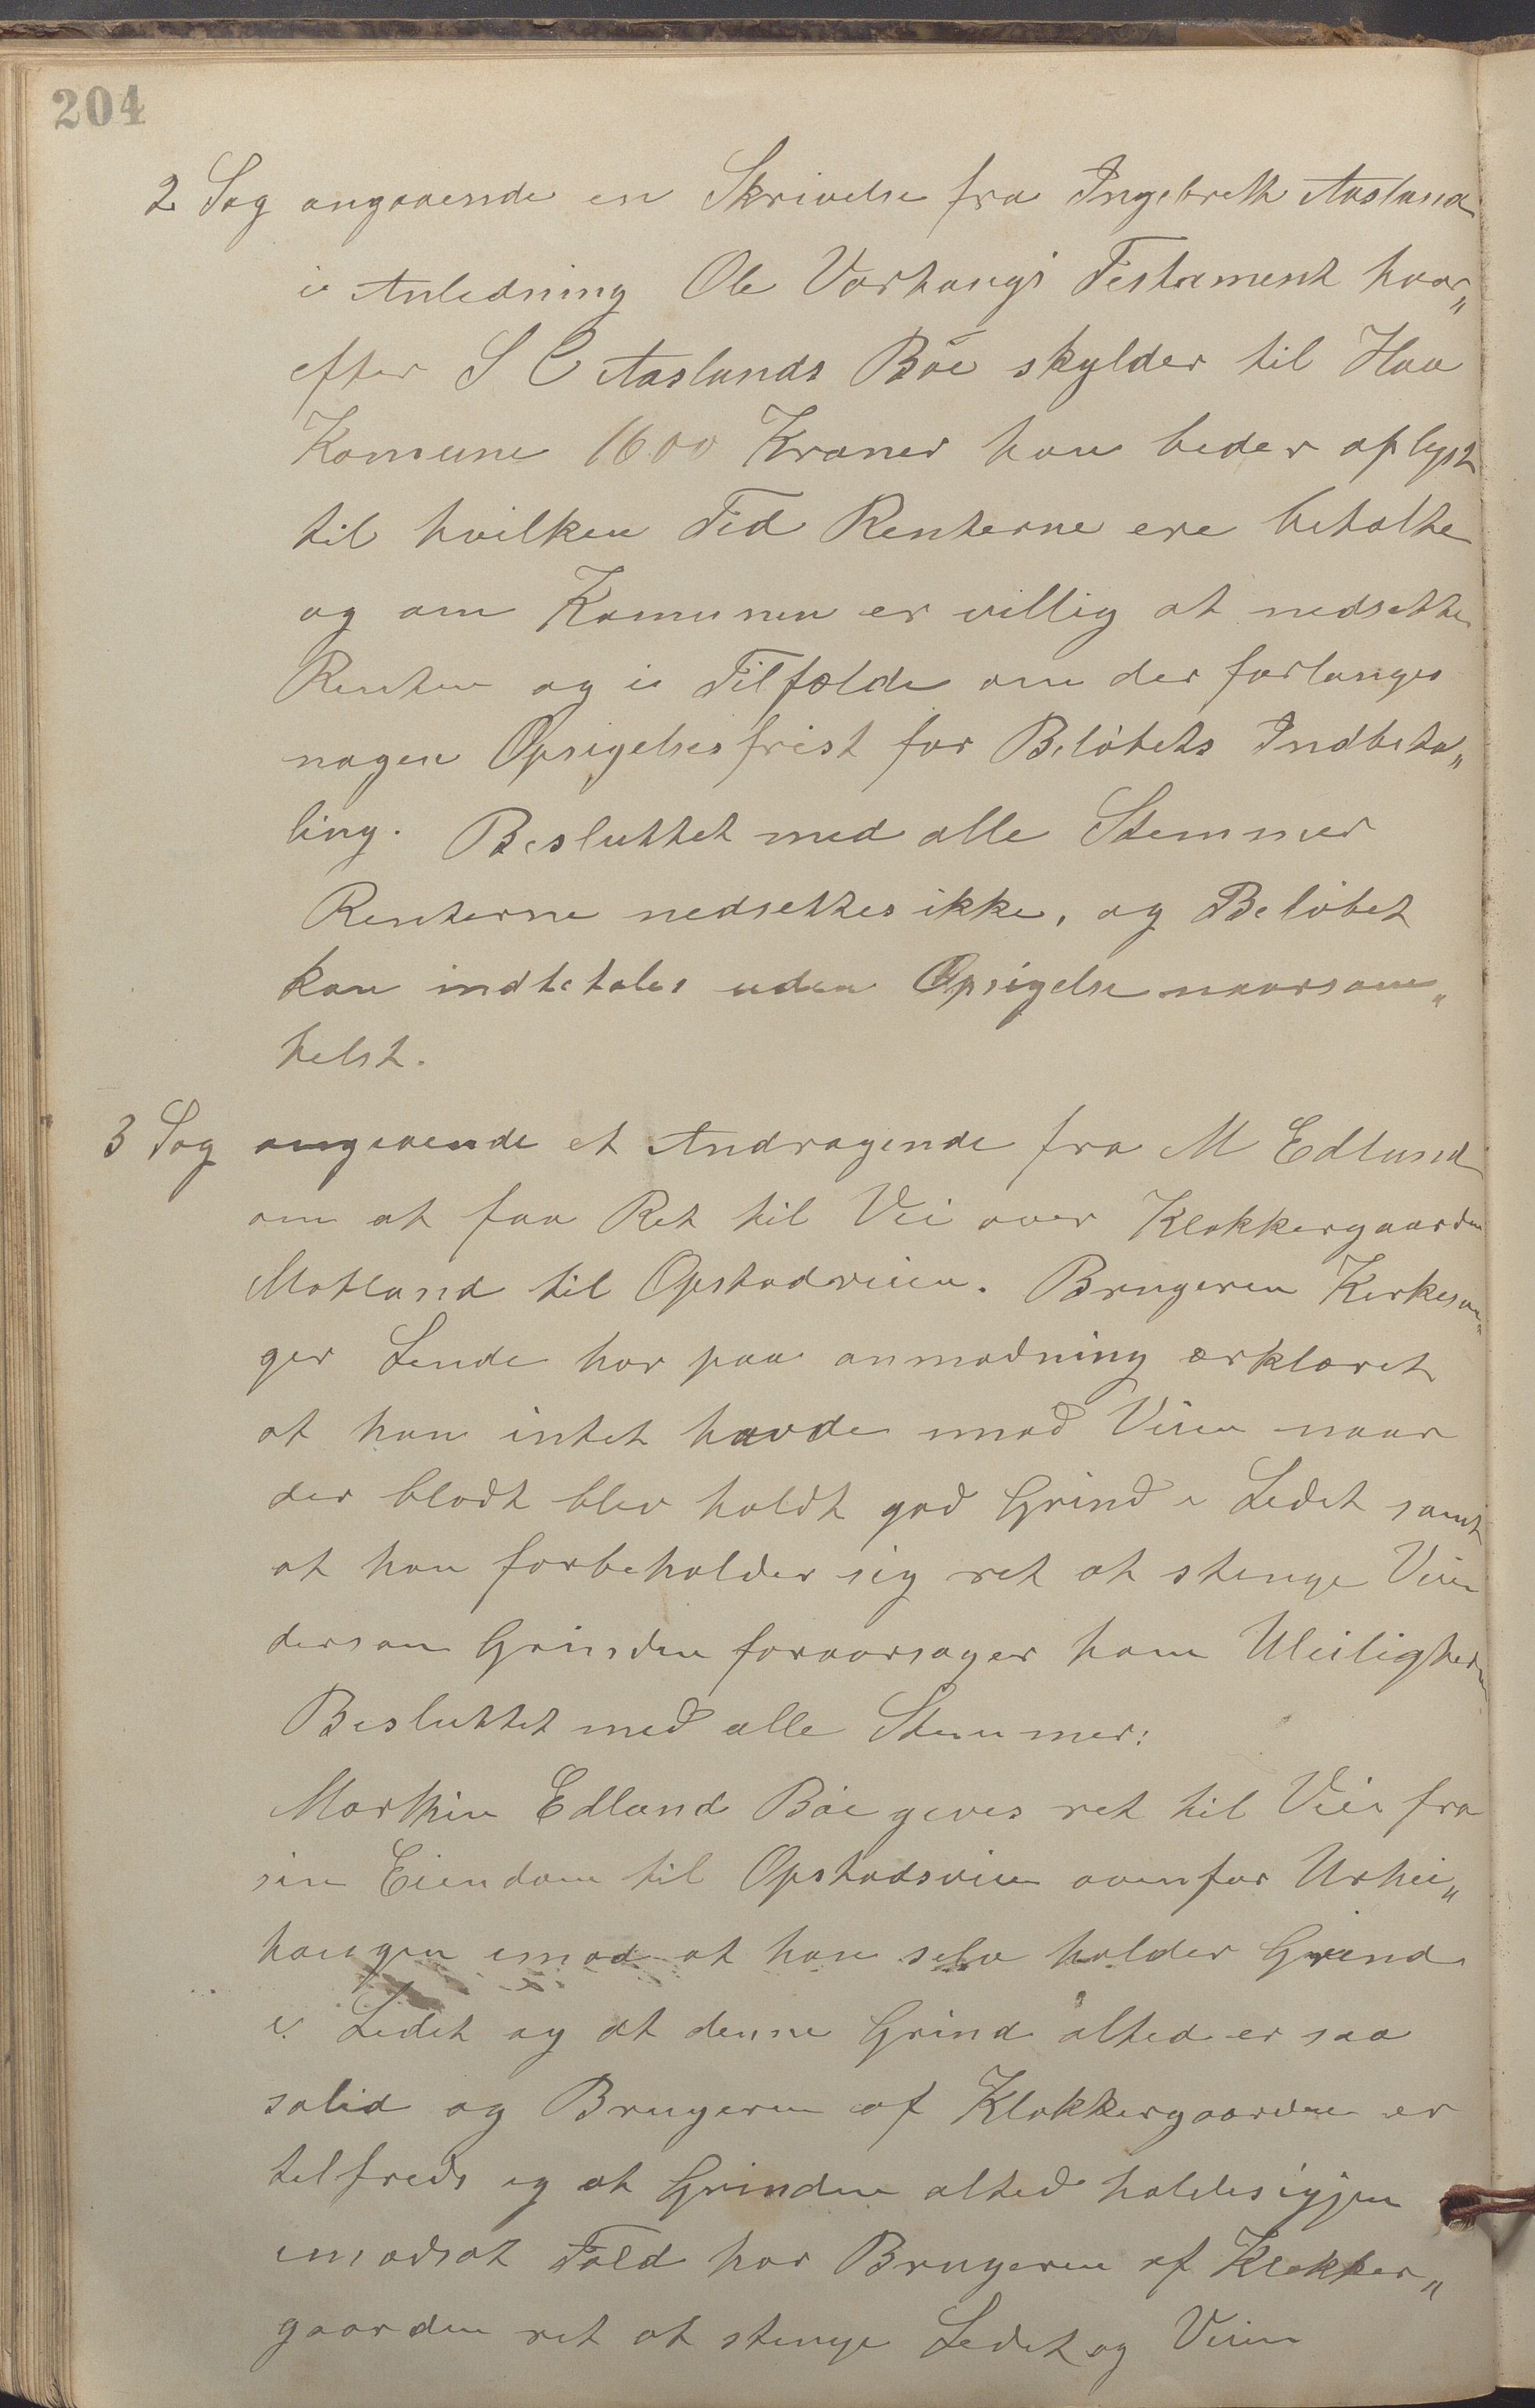 204
2 Sag angaaende en Skrivelse fra Ingebreth Aasland
i Anledning Ole Varhaugs Testament hvor„
efter S C Aaslands Böe skylder til Haa
Komune 1600 Kroner han beder oplyst
til hvilken Tid Renterne ere betalte
og om Komunen er villig at nedsette
Renten og i Tilfælde om der forlanges
nogen Opsigelsesfrist for Belöbets Indbeta„
ling. Besluttet med alle Stemmer
Renterne nedsettes ikke, og Belöbet
kan indbetales uden Opsigelse naarsom„
helst.
3 Sag angaaende et Andragende fra M Edland
om at faa Ret til Vei over Klokkergaarden
Motland til Opstadveien. Brugeren Kirkesan„
ger Lende har paa anmodning ærklæret
at han intet havde imod Veien naar
der blodt blev holdt god Grind i Ledet samt
at han forbeholder sig ret at stenge Veien
dersom Grinden foraarsager ham Uleilighed
Besluttet med alle Stemmer:
Marthin Edland Böe geves ret til Vei fra
sin Eiendom til Opstadsveien ovenfor Urhei„
haugen imod at han selv holder Grind
i Ledet og at denne Grind altid er saa
solid og Brugeren af Klokkergaarden er
tilfreds og at Grinden altid holdes igjen
imodsat Fald har Brugeren af Klokker„
gaarden ret at stenge Ledet og Veien